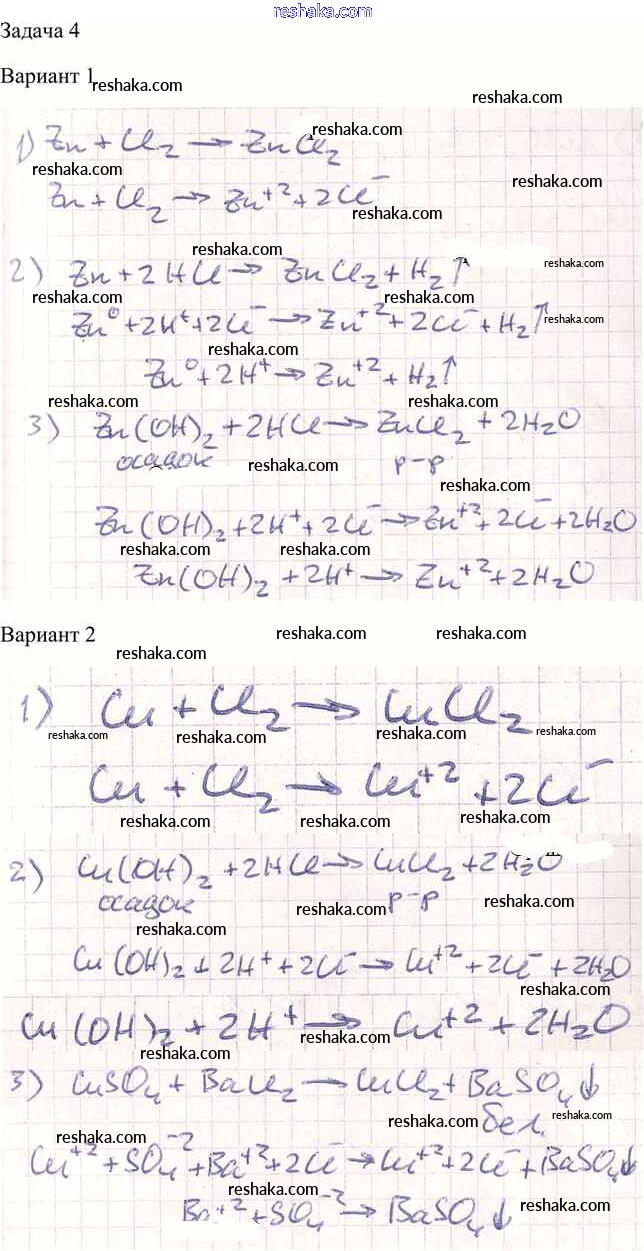 reshaka.com
Задача 4
Вариант 1
reshaka.com
reshaka.com
reshaka.com
1) Zn + Cl2 → ZnCl2
reshaka.com
reshaka.com
Zn + Cl2 → Zn+2 + 2Cl-
reshaka.com
reshaka.com
2) Zn + 2HCl → ZnCl2 + H2↑
reshaka.com
reshaka.com
reshaka.com
Zn0 + 2H+ + 2Cl- → Zn+2 + 2Cl- + H2↑
reshaka.com
reshaka.com
Zn0 + 2H+ → Zn+2 + H2↑
reshaka.com
reshaka.com
3) Zn(OH)2 + 2HCl → ZnCl2 + 2H2O
осадок р-р
reshaka.com
reshaka.com
Zn(OH)2 + 2H+ + 2Cl- → Zn+2 + 2Cl- + 2H2O
reshaka.com reshaka.com
Zn(OH)2 + 2H+ → Zn+2 + 2H2O
reshaka.com
reshaka.com
Вариант 2
reshaka.com reshaka.com
reshaka.com
1) Cu + Cl2 → CuCl2
reshaka.com reshaka.com reshaka.com reshaka.com
Cu + Cl2 → Cu+2 + 2Cl-
reshaka.com reshaka.com
2) Cu(OH)2 + 2HCl → CuCl2 + 2H2O
осадок р-р
reshaka.com reshaka.com
reshaka.com
Cu(OH)2 + 2H+ + 2Cl- → Cu+2 + 2Cl- + 2H2O
reshaka.com
Cu(OH)2 + 2H+ → Cu+2 + 2H2O
reshaka.com
reshaka.com
3) CuSO4 + BaCl2 → CuCl2 + BaSO4↓
бел.
reshaka.com reshaka.com
reshaka.com
Cu+2 + SO4-2 + Ba+2 + 2Cl- → Cu+2 + 2Cl- + BaSO4↓
reshaka.com
Ba+2 + SO4-2 → BaSO4↓
reshaka.com